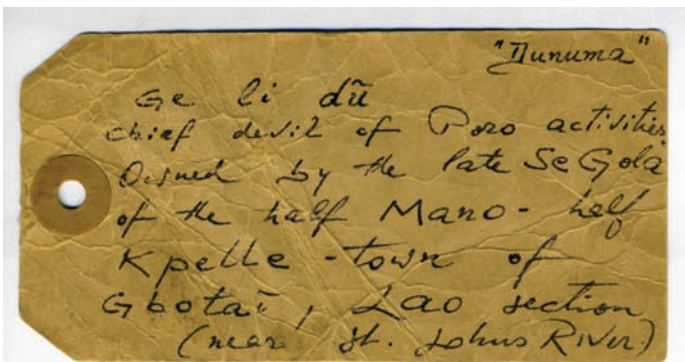 "Nunuma"
Ge li dũ
chief devil of Poro activities
Owned by the late Se Gola
of the half Mano - half
Kpelle - town of
Gbotaī, Lao section
(near St. Johns River)